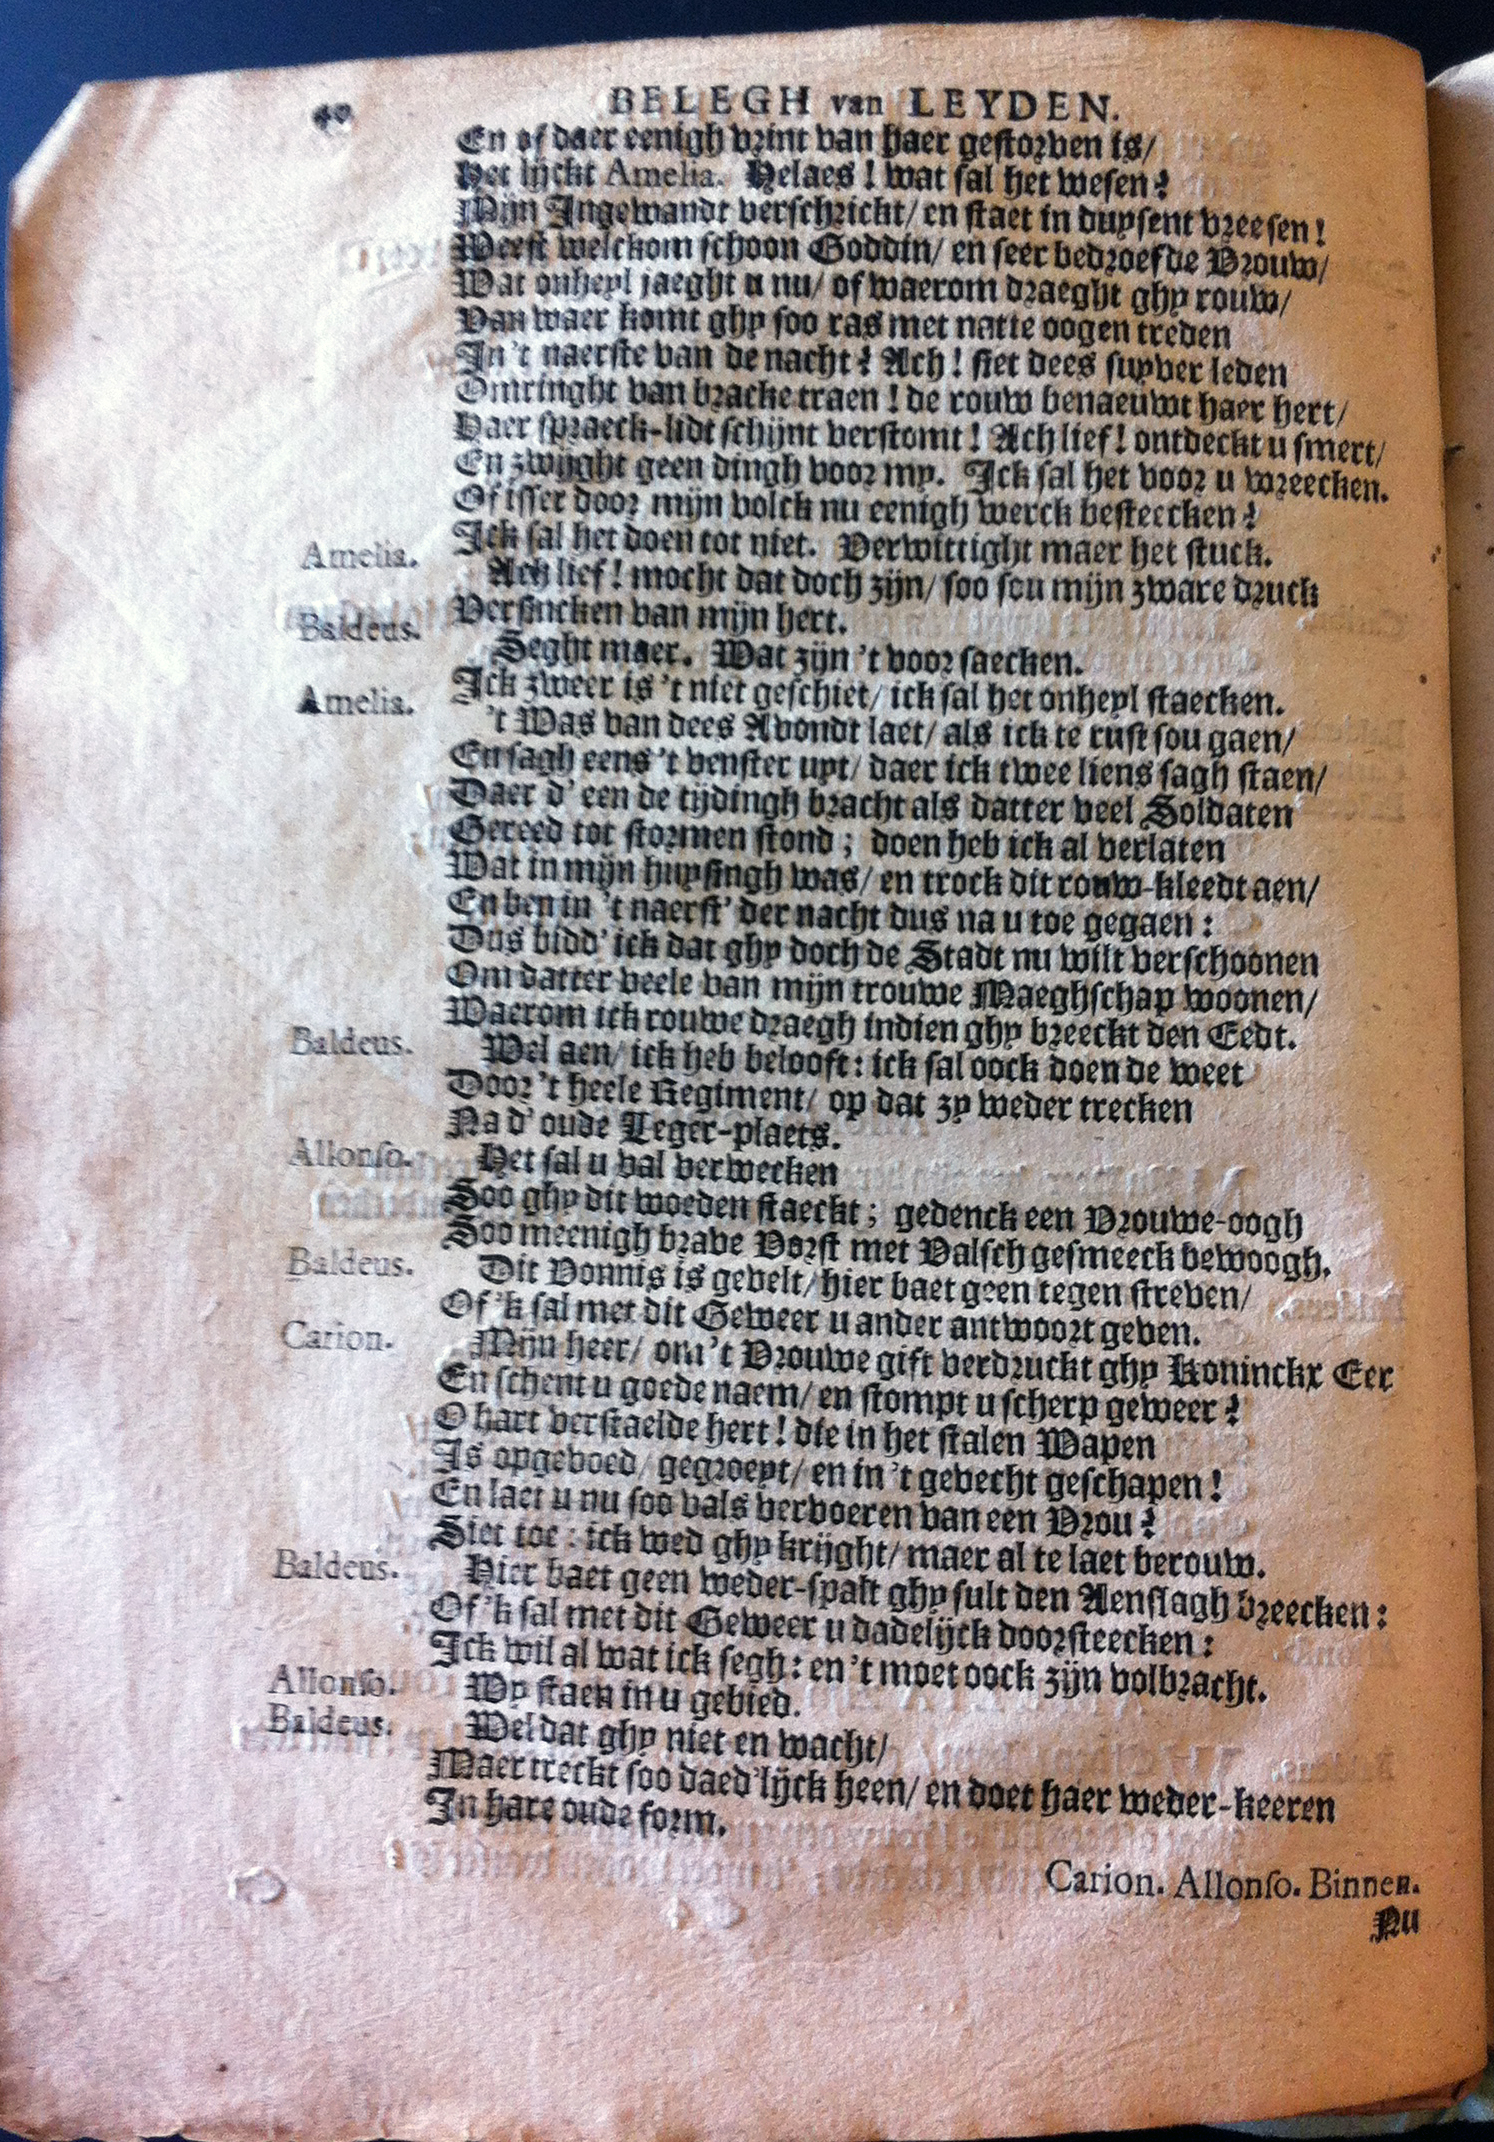 40 BELEGH van LEYDEN.
En of daer eenigh vrint van haer gestorven is/
Het lijckt Amelia. Helaes! wat sal het wesen?
Mijn Ingewandt verschrickt/ en staet in duysent vreesen!
Weest welckom schoon Goddin/ en seer bedroefde Vrouw/
Wat onheyl jaeght u nu/ of waerom draeght ghy rouw/
Van waer komt ghy soo ras met natte oogen treden
In 't naerste van de nacht? Ach! siet dees suyver leden
Omringht van bracke traen! de rouw benaeuwt haer hert/
Haer spraeck-lidt schijnt verstomt! Ach lief! ontdeckt u smert/
En zwijght geen dingh voor my. Ick sal het voor u wreecken.
Of isser door mijn volck nu eenigh werck besteecken?
Ick sal het doen tot niet. Verwittight maer het stuck.
Amelia. Ach lief! mocht dat doch zijn/ soo sou mijn zware druck
Versincken van mijn hert.
Baldeus. Seght maer. Wat zijn 't voor saecken.
Ick zweer is 't niet geschiet/ ick sal het onheyl staecken.
Amelia. 't Was van dees Avondt laet/ als ick te rust sou gaen/
En sagh eens 't venster uyt/ daer ick twee liens sagh staen/
Daer d' een de tijdingh bracht als datter veel Soldaten
Gereed tot stormen stond; doen heb ick al verlaten
Wat in mijn huysingh was/ en trock dit rouw-kleedt aen/
En ben in 't naerst' der nacht dus na u toe gegaen:
Dus bidd' ick dat ghy doch de Stadt nu wilt verschoonen
Om datter veele van mijn trouwe Maeghschap woonen/
Waerom ick rouwe draegh indien ghy breeckt den Eedt.
Baldeus. Wel aen/ ick heb belooft: ick sal oock doen de weet
Door 't heele Regiment/ op dat zy weder trecken
Na d' oude Leger-plaets.
Allonso. Het sal u val verwecken
Soo ghy dit woeden staeckt; gedenck een Vrouwe-oogh
Soo meenigh brave Vorst met Valsch gesmeeck bewoogh.
Baldeus. Dit Vonnis is gevelt/ hier baet geen tegen streven/
Of 'k sal met dit Geweer u ander antwoort geven.
Carion. Mijn heer/ om 't Vrouwe gift verdruckt ghy Koninckx Eer
En schent u goede naem/ en stompt u scherp geweer?
O hart verstaelde hert! die in het stalen Wapen
Is opgevoed/ gegroeyt/ en in 't gevecht geschapen!
En laet u nu soo vals vervoeren van een Vrou?
Siet toe: ick wed ghy krijght/ maer al te laet berouw.
Baldeus. Hier baet geen weder-spalt ghy sult den Aenslagh breecken:
Of 'k sal met dit Geweer u dadelijck doorsteecken:
Ick wil al wat ick segh: en 't moet oock zijn volbracht.
Allonso. Wy staen in u gebied.
Baldeus. Wel dat ghy niet en wacht/
Maer treckt soo daed'lijck heen/ en doet haer weder-keeren
In hare oude form.
Carion. Allonso. Binnen.
Nu